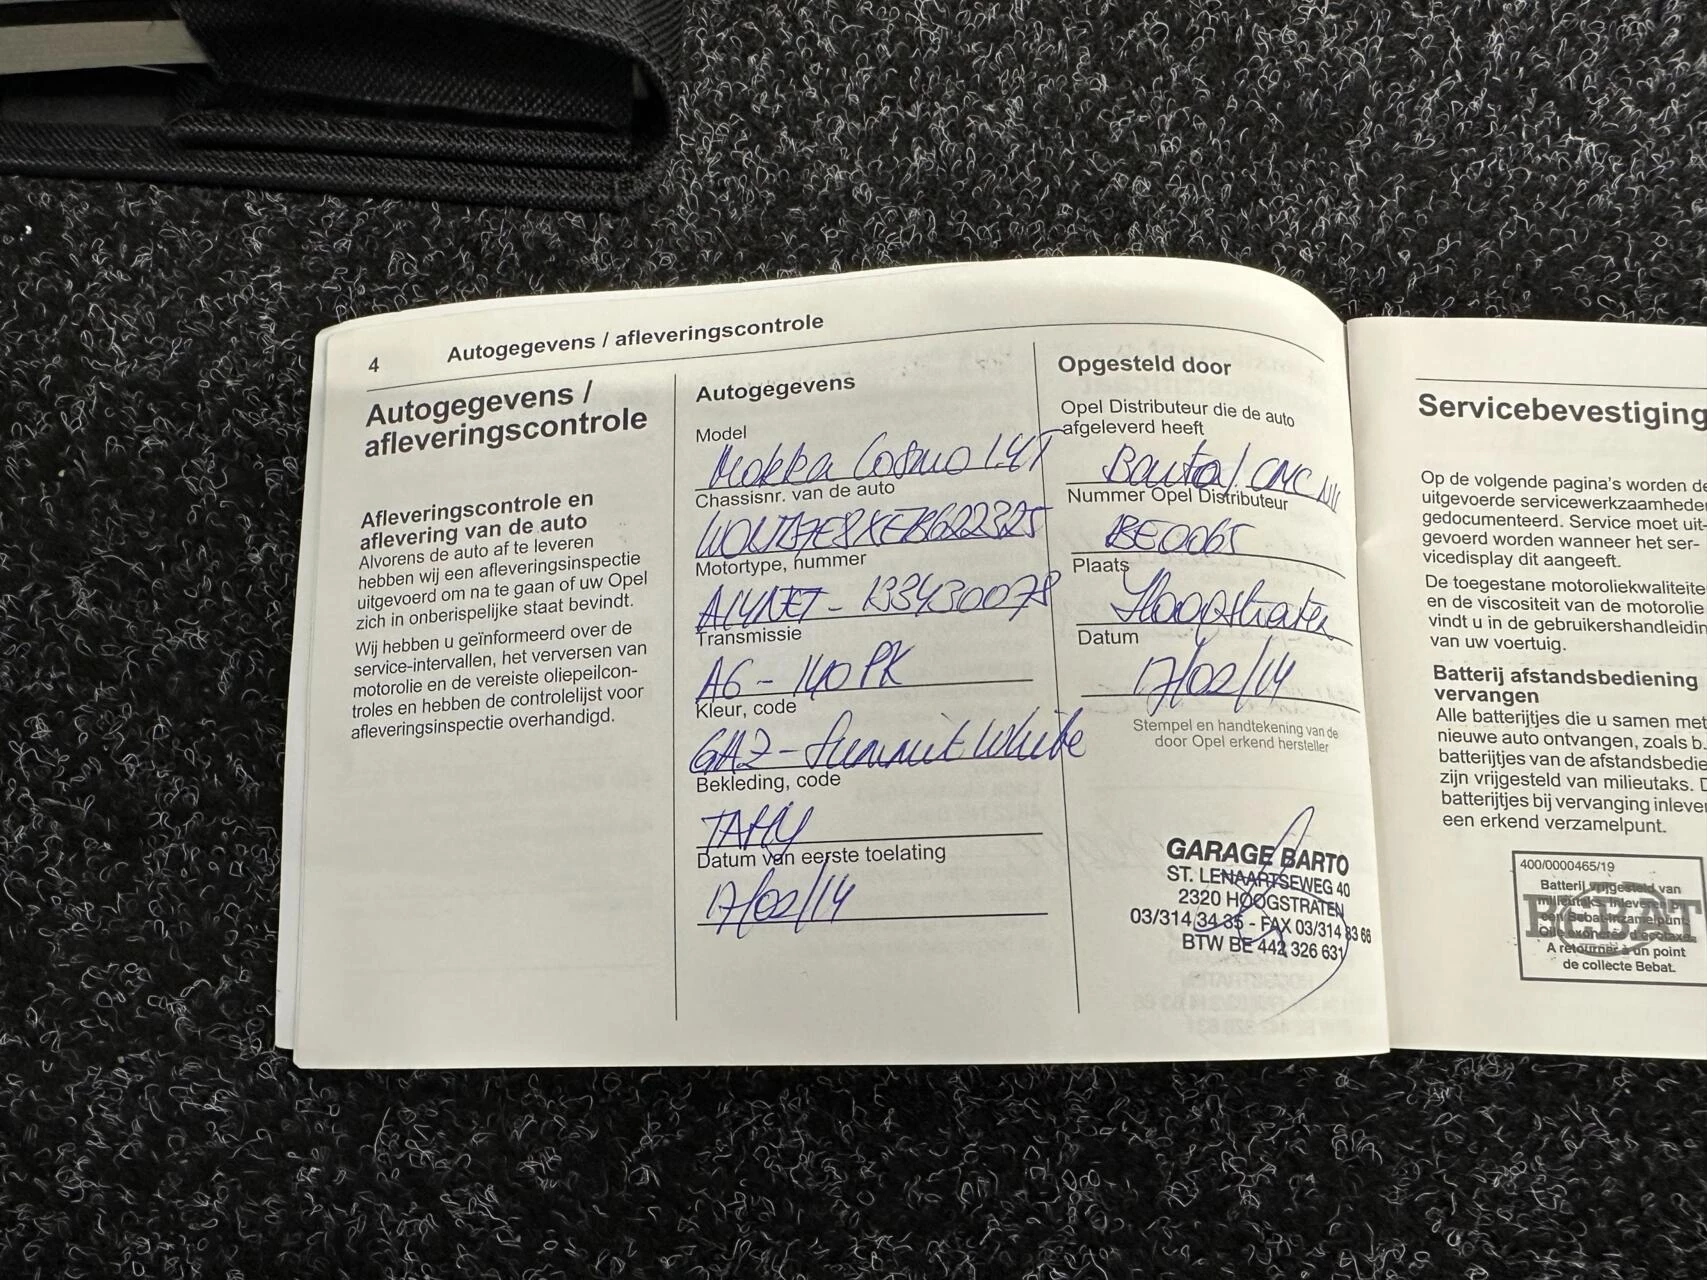 4
Autogegevens / afleveringscontrole
Autogegevens /
afleveringscontrole
Afleveringscontrole en
aflevering van de auto
Alvorens de auto af te leveren
hebben wij een afleveringsinspectie
uitgevoerd om na te gaan of uw Opel
zich in onberispelijke staat bevindt.
Wij hebben u geïnformeerd over de
service-intervallen, het verversen van
motorolie en de vereiste oliepeilcon-
troles en hebben de controlelijst voor
afleveringsinspectie overhandigd.
Autogegevens
Model
Mokka Cosmo 1.4T
Chassisnr. van de auto
Motortype, nummer
A14NET - 133430078
Transmissie
A6 - 140 PK
Kleur, code
GAZ - Summit White
Bekleding, code
Datum van eerste toelating
17/02/14
Opgesteld door
Opel Distributeur die de auto
afgeleverd heeft
Nummer Opel Distributeur
BE0065
Plaats
Hoogstraten
Datum
17/02/14
Stempel en handtekening van de
door Opel erkend hersteller
GARAGE BARTO
ST. LENAARTSEWEG 40
2320 HOOGSTRATEN
03/314 34 35 - FAX 03/314 83 66
BTW BE 442 326 631
Servicebevestiging
Op de volgende pagina's worden de
uitgevoerde servicewerkzaamhede
gedocumenteerd. Service moet uit-
gevoerd worden wanneer het ser-
vicedisplay dit aangeeft.
De toegestane motoroliekwaliteite
en de viscositeit van de motorolie
vindt u in de gebruikershandleidin
van uw voertuig.
Batterij afstandsbediening
vervangen
Alle batterijtjes die u samen met
nieuwe auto ontvangen, zoals b.
batterijtjes van de afstandsbedie
zijn vrijgesteld van milieutaks. D
batterijtjes bij vervanging inlever
een erkend verzamelpunt.
400/0000465/19
Batterij vrijgesteld van
milieutaks. Inleveren bij
een Bebat-inzamelpunt.
Pile exonérée d'écotaxe.
A retourner à un point
de collecte Bebat.
BEBAT